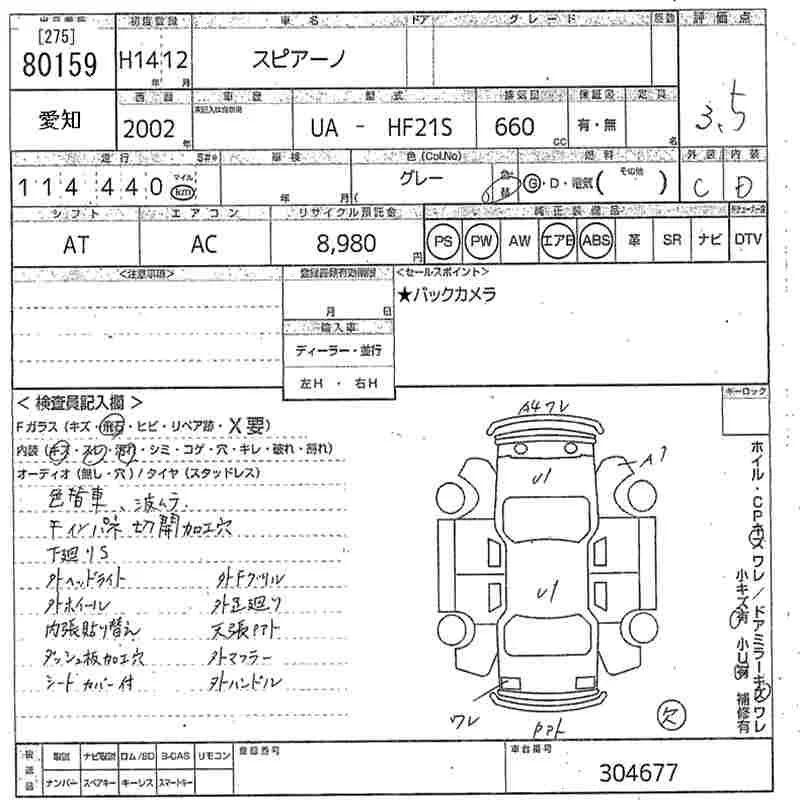 初度登録 車名 ドア グレード 評価点
[275]
80159 H14 12 スピアーノ
年 月
3.5
西暦 車歴 型式 排気量 保証書 定員
愛知 2002 年 UA - HF21S 660 cc 有・無 名
走行 車検 色(Col.No) 燃料 外装 内装
114440 マイル km 年 月 グレー G・D・電気( その他 ) C D
シフト エアコン リサイクル預託金 純正装備品
AT AC 8,980 円 PS PW AW エアB ABS 革 SR ナビ DTV
<注意事項> <セールスポイント>
★バックカメラ
月 日
輸入車
ディーラー・並行
左H ・ 右H
キーロック
<検査員記入欄>
Fガラス (キズ・飛石・ヒビ・リペア跡・X要)
A4ワレ
オーディオ (無し・穴) / タイヤ (スタッドレス)
A1
U1
色替車、波ムラ
切開加工穴
下廻りS
外ヘッドライト 外Fグリル
外ホイール 外足廻り
U1
内張貼り替え
ダッシュ板加工穴 外マフラー
シートカバー付 外ハンドル
ワレ
欠
ホイル・CPキズワレ/ドアミラーキズワレ
小キズ有 小U有 補修有
取説 ナビ取説 ロム/SD B-CAS リモコン 登録番号 車台番号
ナンバー スペアキー キーレス スマートキー 304677